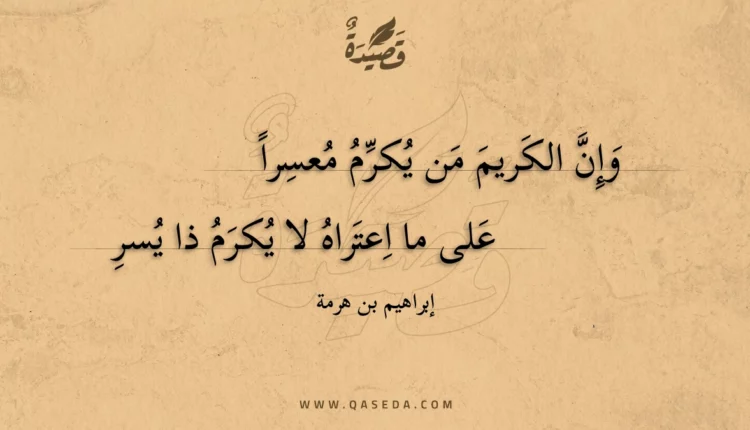 قَصِيْدَةٌ
وَإِنَّ الكَريمَ مَن يُكرِّمُ مُعسِراً
عَلى ما اِعتَراهُ لا يُكرَمُ ذا يُسرِ
إبراهيم بن هرمة
WWW.QASEDA.COM